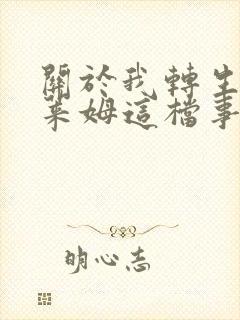 關於我轉生
萊姆這檔事
明心志